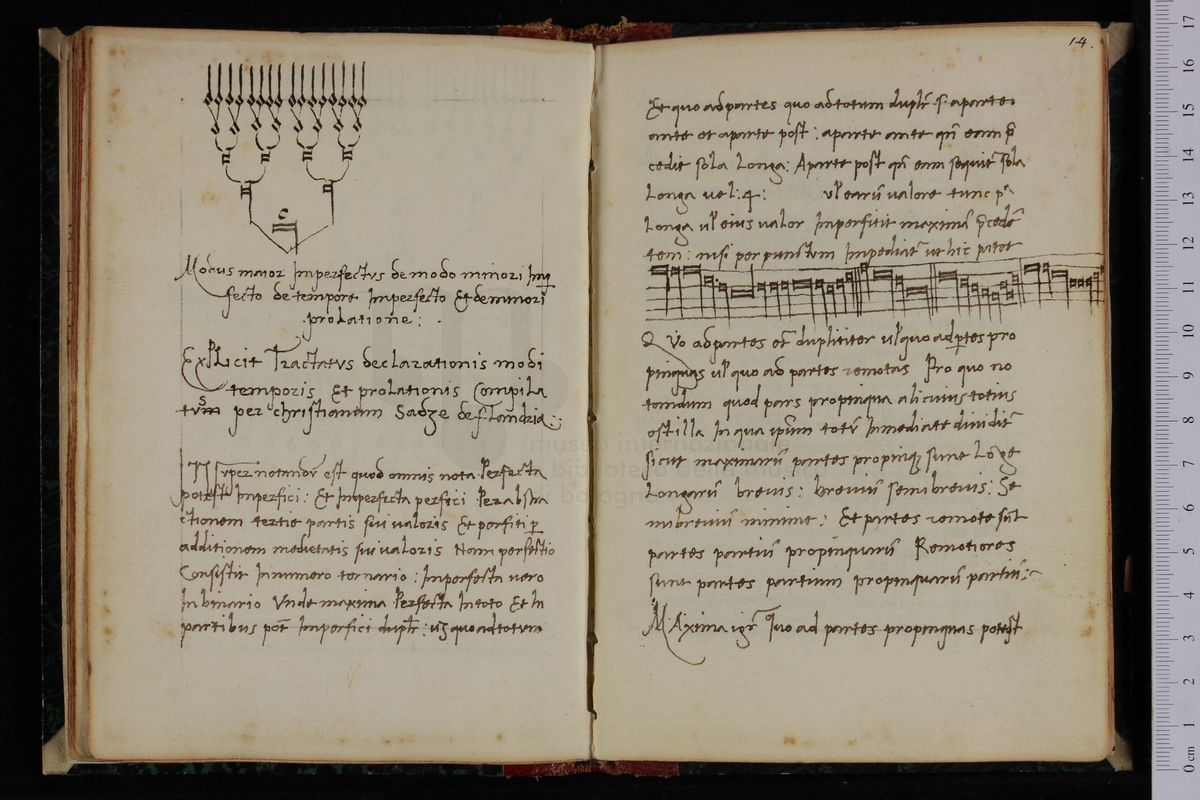 C
Modus maior Imperfectus de modo minori Imper
fecto de tempore Imperfecto Et de minori
prolatione:
ExPLicit Tractatus declarationis modi
temporis Et prolationis Compila
tus per christianum Sadze de flandria:
Super notandum est quod omnis nota Perfecta
potest Imperfici: Et Imperfecta perfici Per abstra
ctionem tertie partis sui valoris Et perfici p
additionem medietatis sui valoris Nam perfectio
Consistit In numero ternario: Imperfecta vero
In binario Unde maxima Perfecta In toto Et In
partibus pot Imperfici duplr: quo ad totum
14.
Et quo ad partes quo ad totum duplr s. a parte
ante et a parte post: a parte ante qn eam p
cedit sola Longa: A parte post qn eam sequit sola
Longa vel: 4: vl earu valore tunc pa
Longa vl eius valor Imperficit maxima pcede
tem: nisi per punctum Impediat ut hic patet
Quo ad partes et dupliciter vl quo ad ptes pro
pinquas vl quo ad partes remotas Pro quo no
tandum quod pars propinqua alicuius totius
est illa In qua ipsum totu Inmediate dividit
sicut maximaru partes propinq sunt Loge
Longaru brevis: breviu semibrevis: Se
mibreviu minime: Et partes remote sut
partes partiu propinquaru Remotiores
sunt partes partium propinquaru partiu:
MAxima igr Quo ad partes propinquas potest
museo internazionale
e biblioteca della musica
di bologna